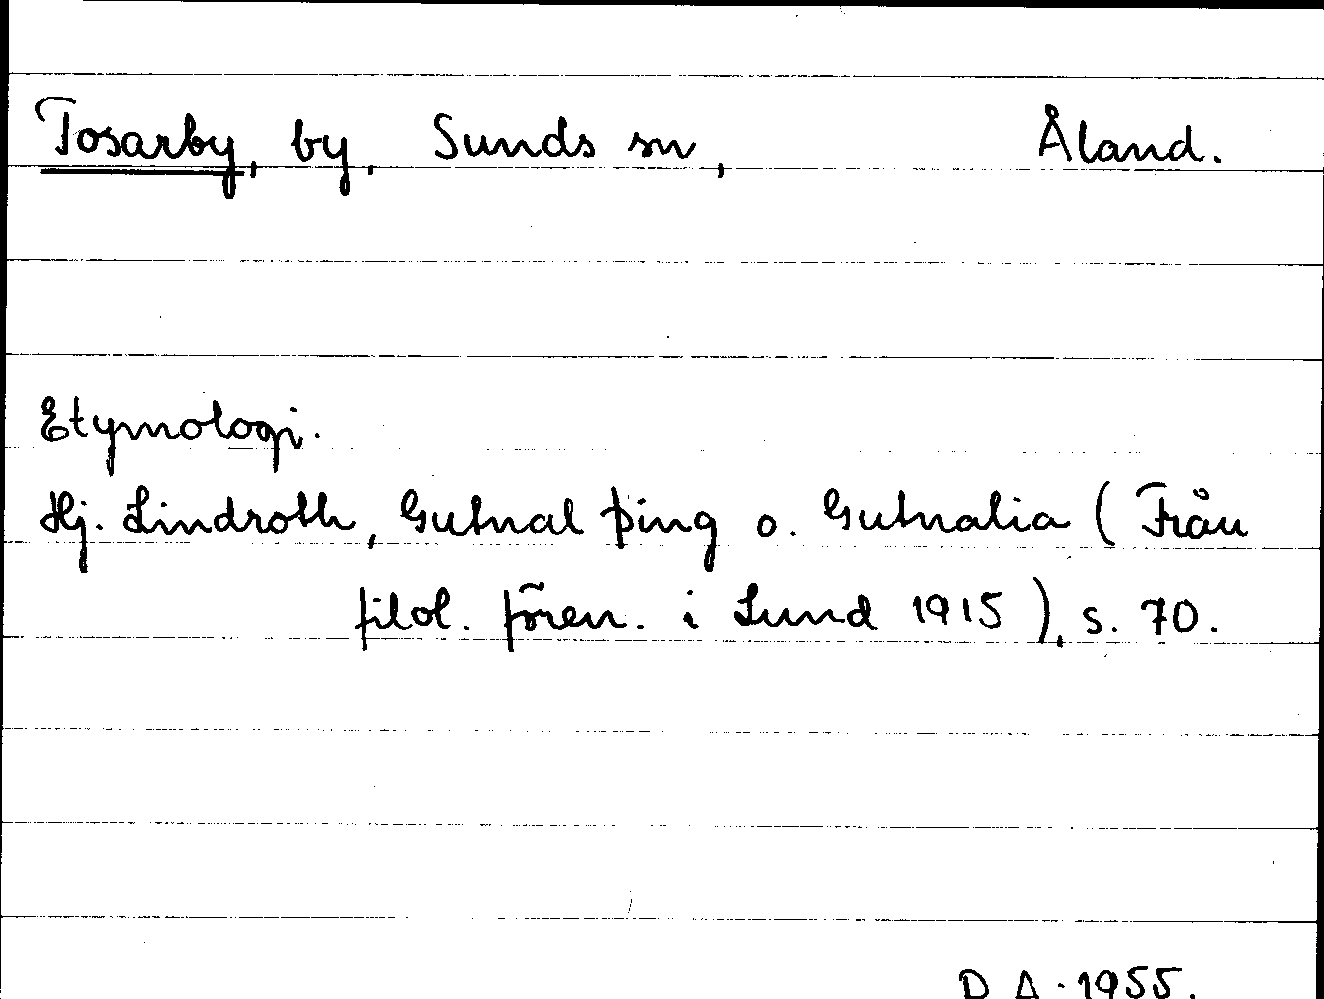 Tosarby, by, Sunds sn, Åland.
Etymologi.
Hj. Lindroth, Gutnal þing o. Gutnalia (Från
filol. fören. i Lund 1915), s. 70.
D. A. 1955.